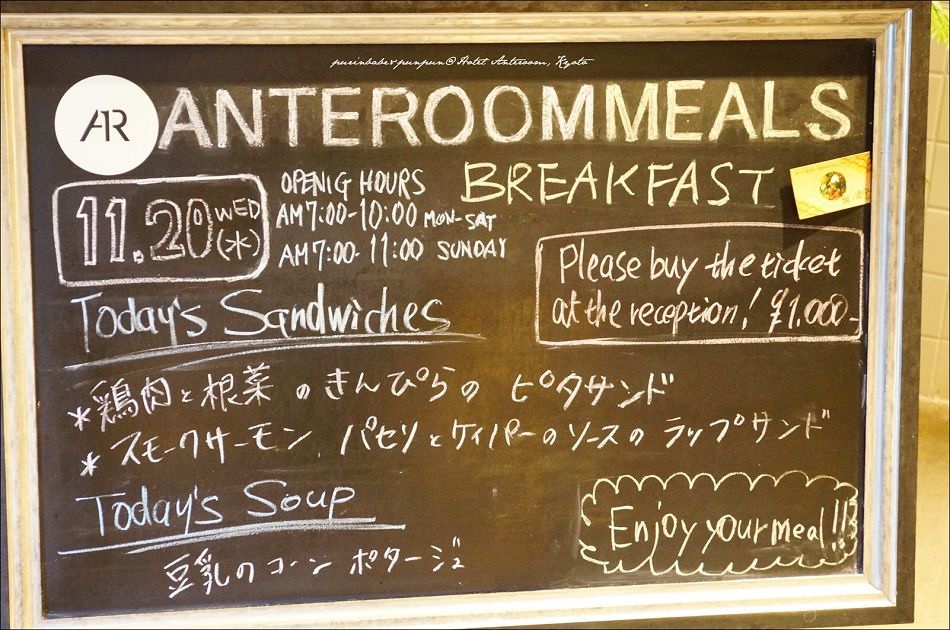 purinbabe&punpun@Hotel Anteroom, Kyoto
AR
ANTEROOMMEALS
BREAKFAST
11.20 WED (水)
OPENIG HOURS
AM7:00-10:00 MON-SAT
AM7:00-11:00 SUNDAY
Please buy the ticket
at the reception! ¥1.000-
Today's Sandwiches
*鶏肉と根菜のきんぴらの ピタサンド
*スモークサーモン パセリとケイパーのソースの ラップサンド
Today's Soup
豆乳のコーン ポタージュ
Enjoy your meal!!